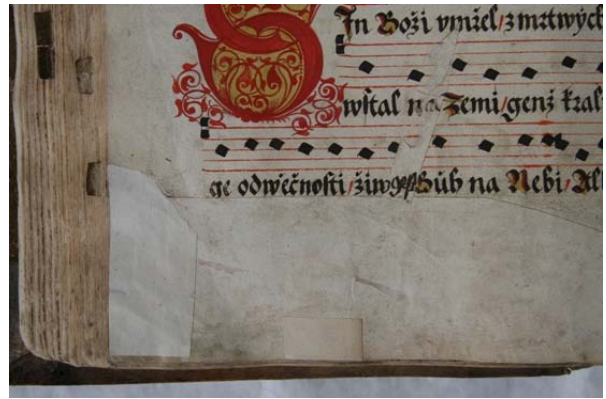 Syn Boži vmřel/zmrtwých
wſtal na Zemi/genž kral
ge odwěčnoſti/žiw geſt Bůh na Nebi/